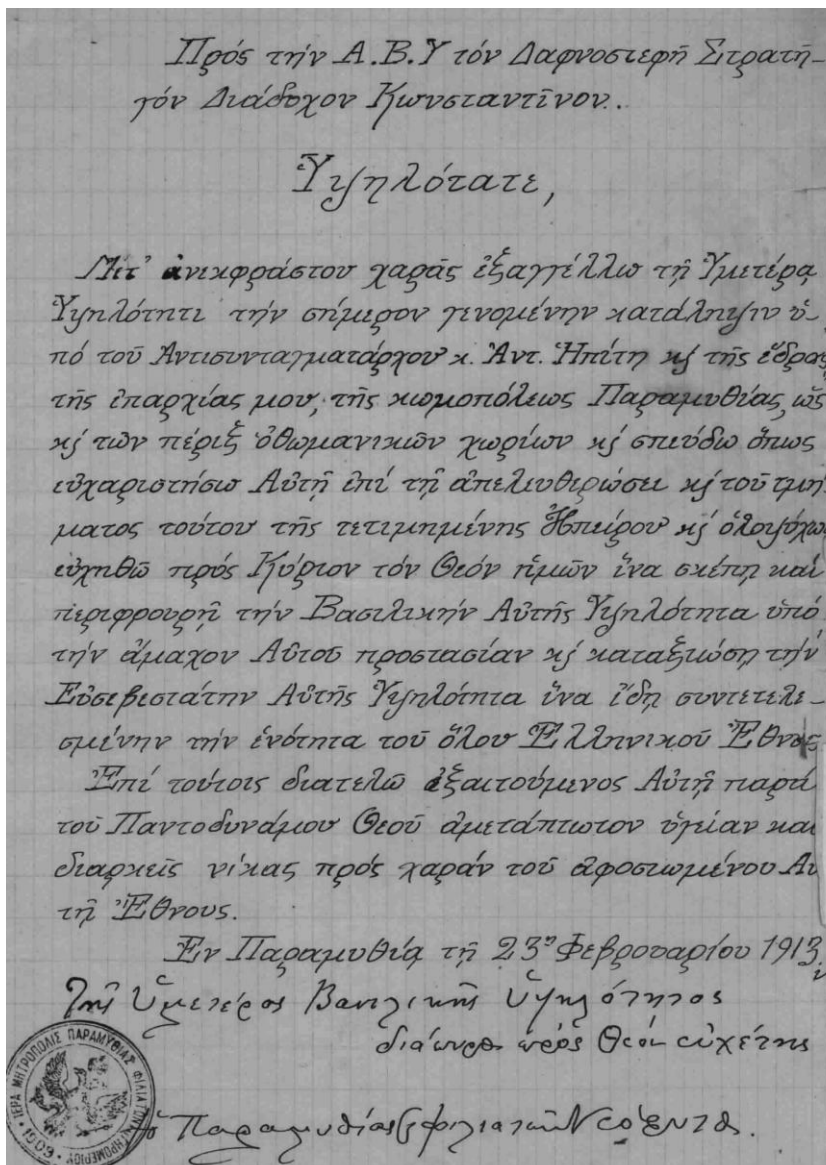 Πρός τήν Α.Β.Υ τόν Δαφνοστεφῆ Στρατη-
γόν Διάδοχον Κωνσταντῖνον..
Ὑψηλότατε,
Μετ' ἀνεκφράστου χαρᾶς ἐξαγγέλλω τῇ Ὑμετέρᾳ
Ὑψηλότητι τήν σήμερον γενομένην κατάληψιν ὑ-
πό τοῦ Ἀντισυνταγματάρχου κ. Ἀντ. Ἠπίτη κ̓ τῆς ἕδρας
τῆς ἐπαρχίας μου, τῆς κωμοπόλεως Παραμυθίας, ὡς
κ̓ τῶν πέριξ ὀθωμανικῶν χωρίων κ̓ σπεύδω ὅπως
εὐχαριστήσω Αὐτῇ ἐπί τῇ ἀπελευθερώσει κ̓ τοῦ τμή
ματος τούτου τῆς τετιμημένης Ἠπείρου κ̓ ὁλοψύχω
εὐχηθῶ πρός Κύριον τόν Θεόν ἡμῶν ἵνα σκέπῃ καί
περιφρουρῇ τήν Βασιλικήν Αὐτῆς Ὑψηλότητα ὑπό
τήν ἄμαχον Αὐτοῦ προστασίαν κ̓ καταξιώσῃ τήν
Εὐσεβεστάτην Αὐτῆς Ὑψηλότητα ἵνα ἴδῃ συντετελε-
σμένην τήν ἑνότητα τοῦ ὅλου Ἑλληνικοῦ Ἔθνους
Ἐπί τούτοις διατελῶ ἐξαιτούμενος Αὐτῇ παρά
τοῦ Παντοδυνάμου Θεοῦ ἀμετάπτωτον ὑγείαν καί
διαρκεῖς νίκας πρός χαράν τοῦ ἀφοσιωμένου Αὐ
τῇ Ἔθνους.
Ἐν Παραμυθίᾳ τῇ 23ῃ Φεβρουαρίου 1913
Τῆς Ὑμετέρας Βασιλικῆς Ὑψηλότητος
διάπυρος πρός Θεόν εὐχέτης
ὁ Παραμυθίας κ̓ Φιλιατῶν Νεόφυτος.
ΙΕΡΑ ΜΗΤΡΟΠΟΛΙΣ ΠΑΡΑΜΥΘΙΑΣ ΦΙΛΙΑΤΩΝ ΓΗΡΟΜΕΡΙΟΥ